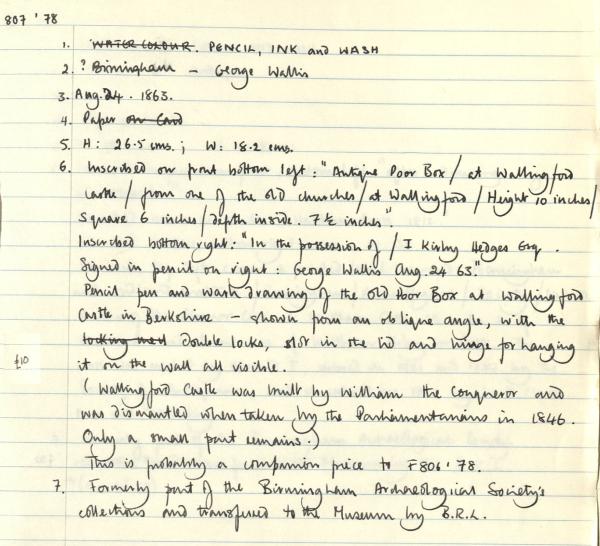 807 '78
1. WATER COLOUR. PENCIL, INK and WASH
2. ? Birmingham - George Wallis
3. Aug. 24. 1863.
4. Paper on Card
5. H: 26.5 cms.; W: 18.2 cms.
6. Inscribed on front bottom left: "Antique Poor Box / at Wallingford
castle / from one of the old churches / at Wallingford / Height 10 inches /
square 6 inches / depth inside. 7½ inches".
Inscribed bottom right: "In the possession of / I Kirby Hedges Esq.
Signed in pencil on right: George Wallis Aug. 24 63."
Pencil pen and wash drawing of the old Poor Box at Wallingford
Castle in Berkshire - shown from an oblique angle, with the
locking double locks, slot in the lid and hinge for hanging
£10
it on the wall all visible.
(Wallingford Castle was built by William the Conqueror and
was dismantled when taken by the Parliamentarians in 1846.
Only a small part remains.)
This is probably a companion piece to F806'78.
7. Formerly part of the Birmingham Archaeological Society's
collections and transferred to the Museum by B.R.L.